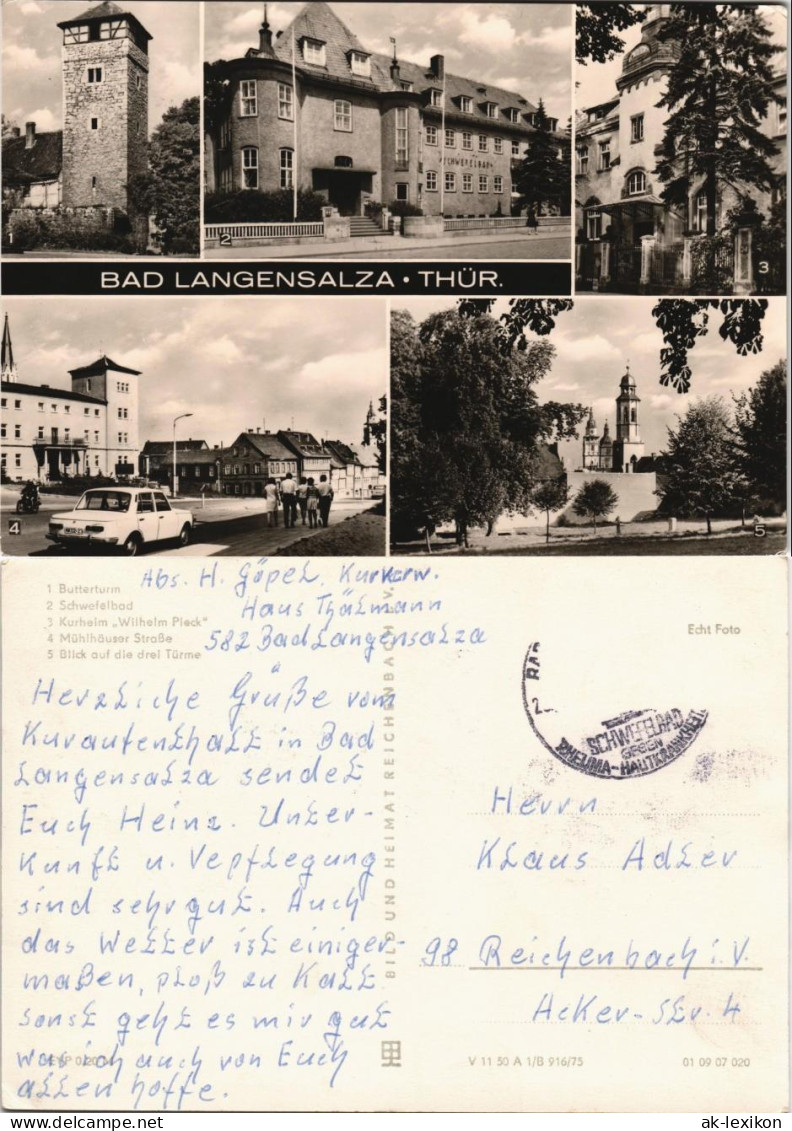 1
2
SCHWEFELBAD
3
BAD LANGENSALZA • THÜR.
4
5
1 Butterturm
2 Schwefelbad
3 Kurheim „Wilhelm Pieck"
4 Mühlhäuser Straße
5 Blick auf die drei Türme
Abs. H. Göpel, Kurverw.
Haus Thälmann
582 Bad Langensalza
Herzliche Grüße vom
Kuraufenthalt in Bad
Langensalza sendet
Euch Heinz. Unter-
kunft u. Vepflegung
sind sehr gut. Auch
das Wetter ist einiger-
maßen, ploß zu kalt
sonst geht es mir gut
was ich auch von Euch
allen hoffe.
BILD UND HEIMAT REICHENBACH
Echt Foto
SCHWEFELBAD
GEGEN
RHEUMA-HAUTKRANKHEITEN
Herrn
Klaus Adler
98 Reichenbach i. V.
Acker-Str. 4
V 11 50 A 1/B 916/75
01 09 07 020
ak-lexikon